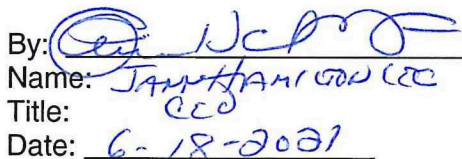 By:
Name: JANN HAMILTON LEE
Title: CEO
Date: 6-18-2021